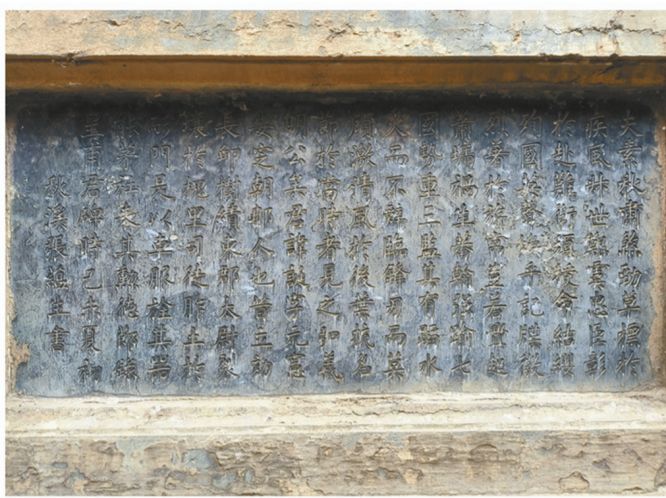 夫素秋肅煞勁草標於
疾風叔世艱虞忠臣彰
於赴難銜須授命結纓
殉國英聲煥乎記牒徽
烈著於旂常豈若釁起
蕭墻禍生蕃翰强踰七
國勢重三監其有蹈水
火而不辭臨鋒刃而莫
顧激清風於後葉抗名
節於當時者見之弘義
明公矣君諱誕字元憲
安定朝那人也昔立効
長邱樹績東郡太尉裂
壤於槐里司徒胙土於
耏門是以車服旌其器
能茅社表其勲德鄒鎮
皇甫君碑時己亥夏初
秋溪張生書